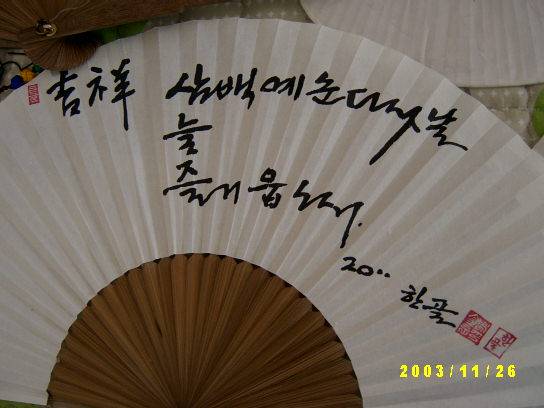 吉祥 삼백예순다섯날
늘
즐거웁소서.
20..
한골
2003/11/26